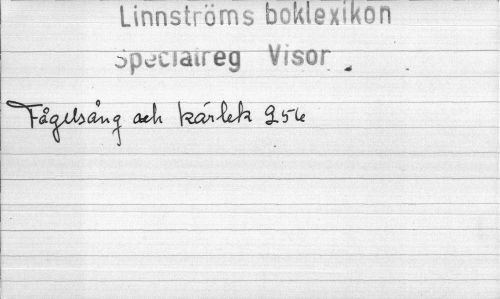 Linnströms boklexikon
Specialreg Visor
Fågelsång och kärlek 956